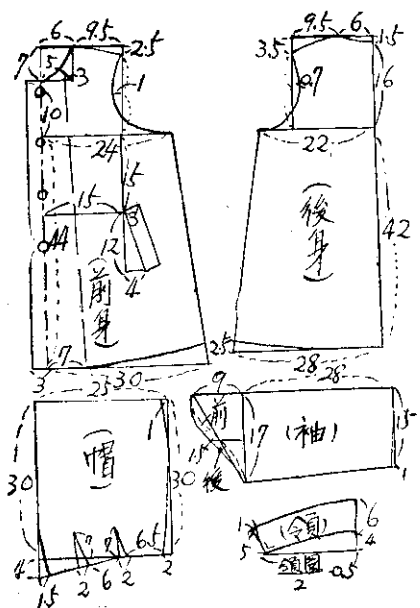 6 9.5
7 5 3 2.5
1
10
24
15
15
3
44
12
4
(前身)
7
3
30
2.5
9.5 6
3.5 1.5
0.7
16
22
(後身)
42
28
25
30 30
1
(帽)
4
1.5 2 6 2 2
7 7 6.5
9 28
前
17 (袖) 15
1.5
後
1
1
5
(領)
6
4
領圍
2
0.5